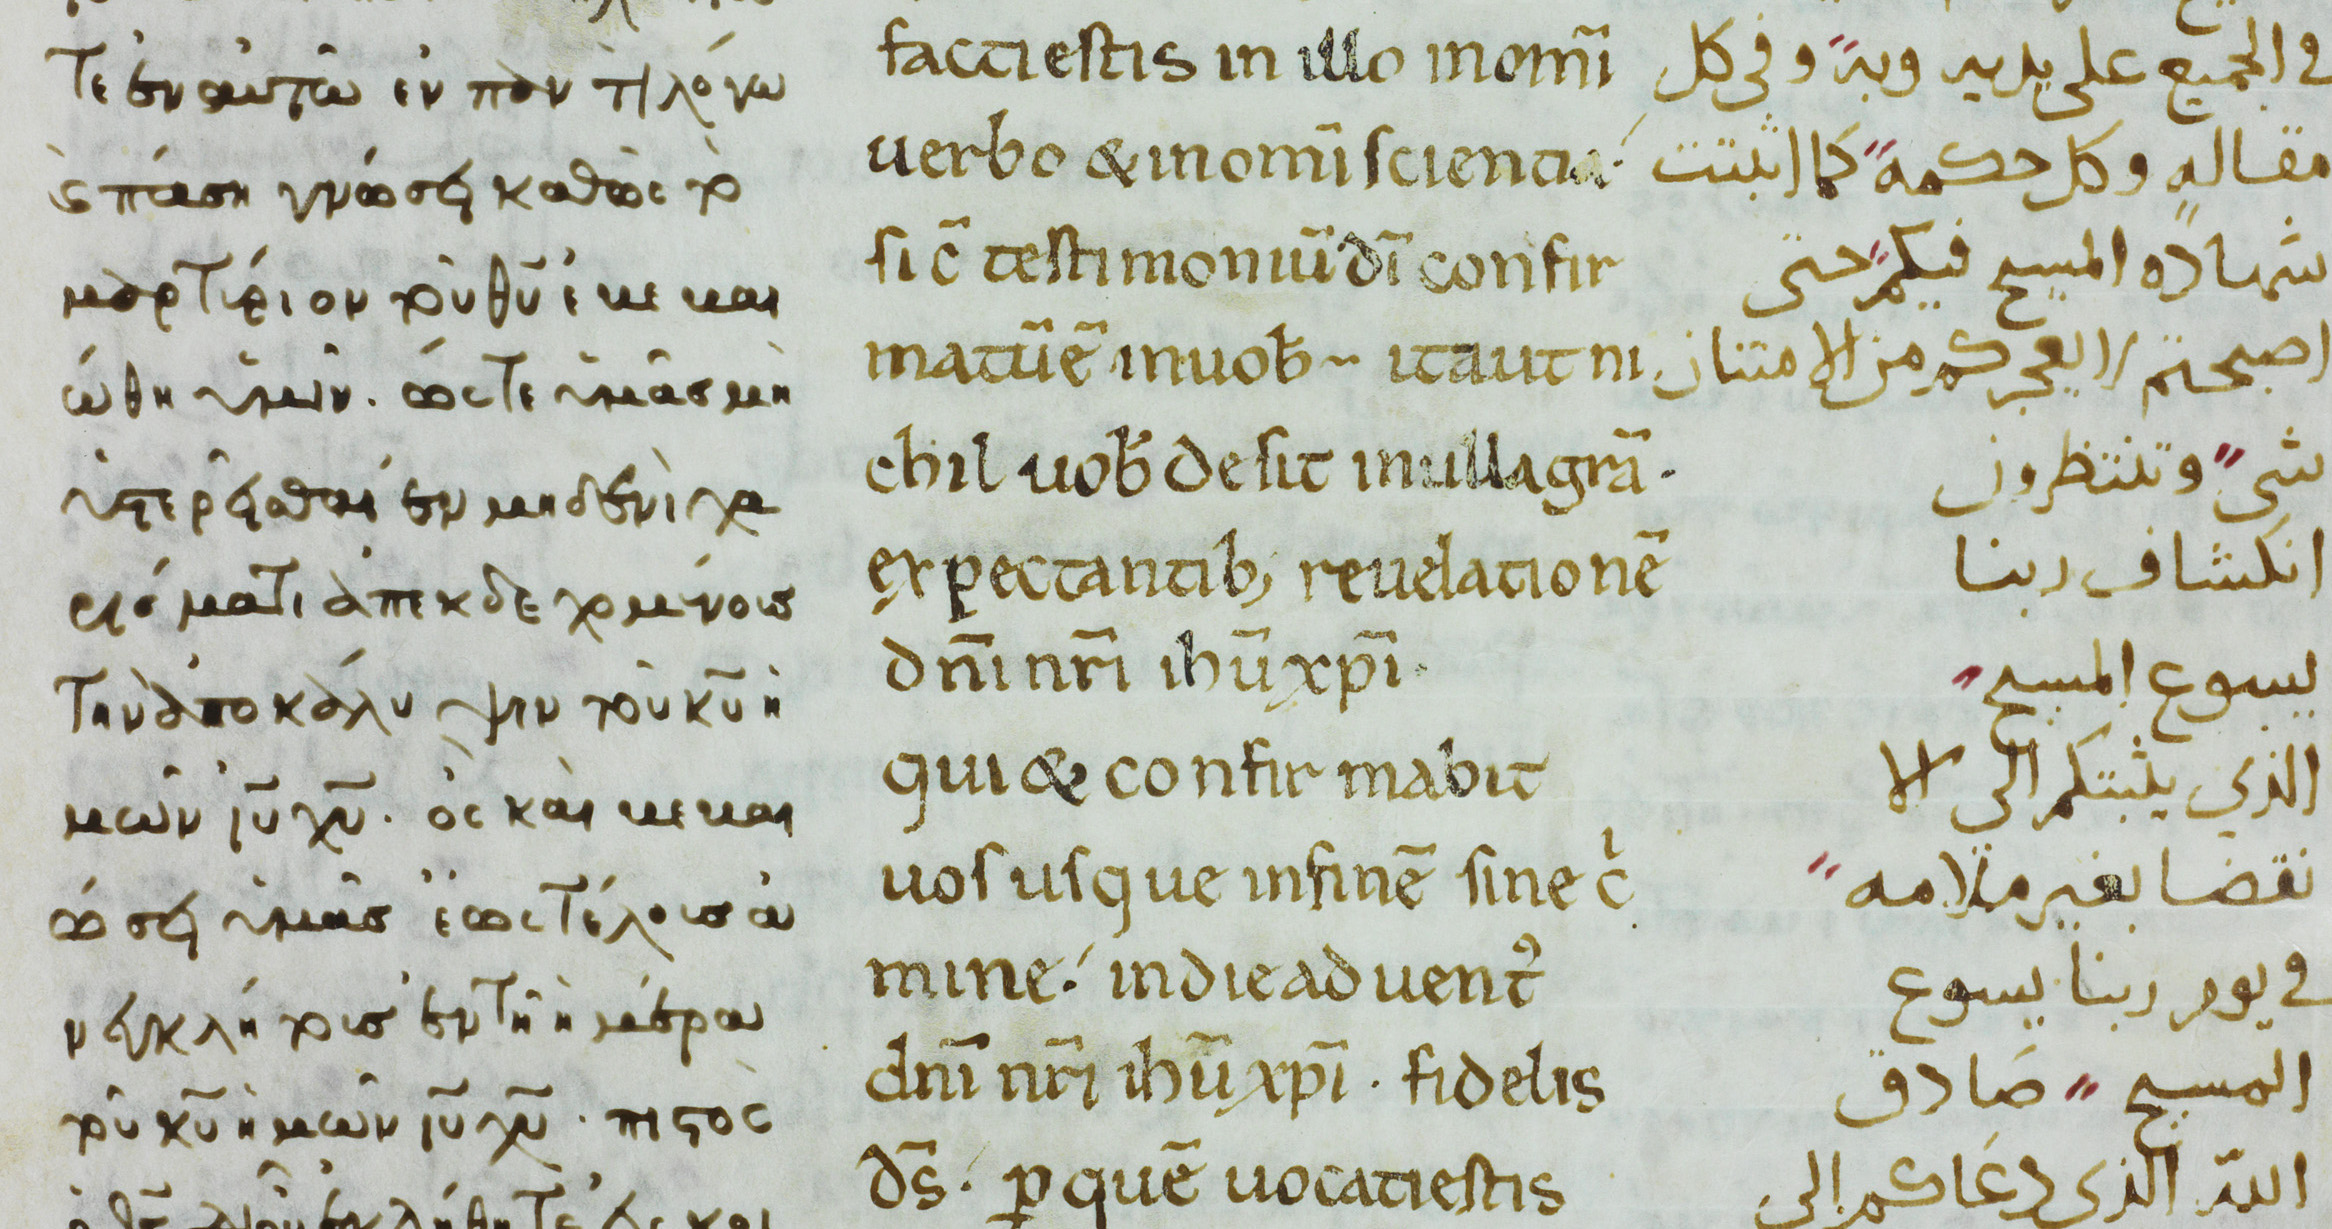 τε ἐν αὐτῶ ἐν παντὶ λόγω
ϗ πάση γνώσει καθὼς τὸ
μαρτύριον τοῦ θῦ ἐβεβαι
ώθη ὑμῖν. ὥστε ὑμᾶσ μὴ
ὑστερεῖσθαι ἐν μηδενὶ χα
ρίσματι ἀπεκδεχομένουσ
τὴν ἀποκάλυψιν τοῦ κῦ ἡ
μῶν ἰῦ χῦ. ὃς καὶ βεβαι
ώσει ὑμᾶσ ἕως τέλουσ ἀ
νεγκλήτουσ ἐν τῆ ἡμέρα
τοῦ κῦ ἡμῶν ἰῦ χῦ. πιϛὸς
facti estis in illo in om̄i
uerbo & in om̄i scientia.
sic̄ testimoniū dī confir
matū ē in uob̄ ita ut ni
chil uob̄ desit in ulla grā.
expectantib; reuelationē
dn̄i nr̄i ihū xp̄i.
qui & confirmabit
uos usque in finē sine c
mine. in die aduent
dn̄i nr̄i ihū xp̄i. fidelis
ds̄. p quē uocati estis
في الجميع على يديه وبه وفي كل
مقاله وكل حكمه كما اثبتت
شهاده المسيح فيكم حتى
اصبحتم لا يعجزكم من الامتنان
شي وتنتظرون
انكشاف ربنا
يسوع المسيح
الذي يثبتكم الى الا
نقضا بغير ملامه
في يوم ربنا يسوع
المسيح صادق
الله الذي دعاكم الى